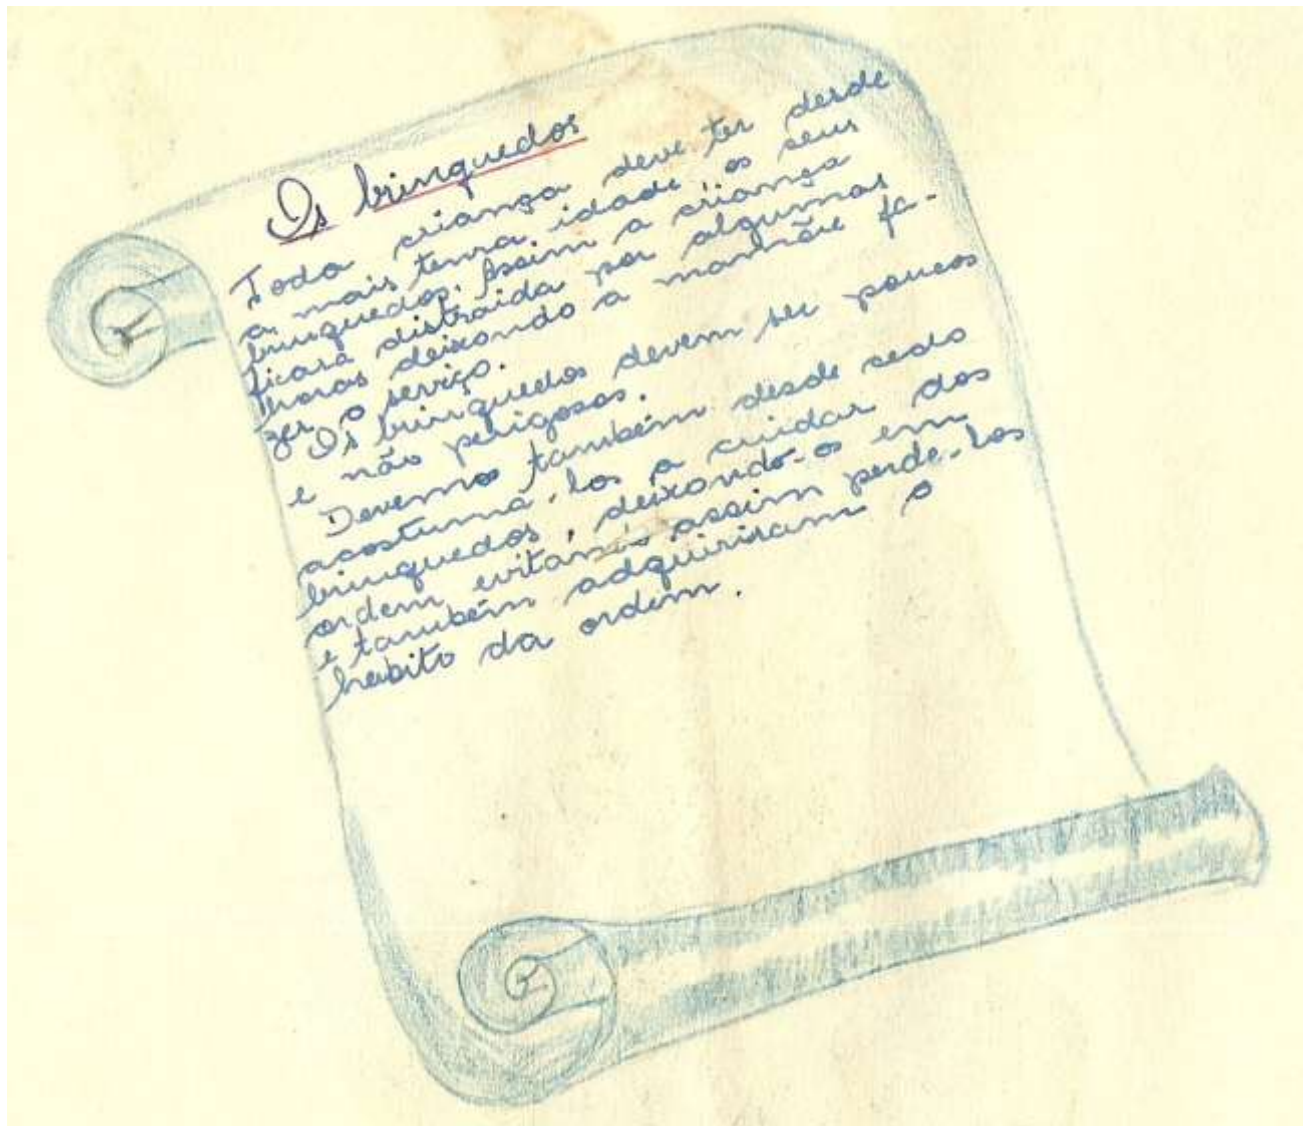 Os brinquedos
Toda criança deve ter desde
a mais tenra idade os seus
brinquedos. Assim a criança
ficará distraida por algumas
horas deixando a mamãe fa-
zer o serviço.
Os brinquedos devem ser poucos
e não perigosos.
Devemos também desde cedo
acostumá-los a cuidar dos
brinquedos, deixando-os em
ordem, evitando assim perde-los
e também adquirirem o
habito da ordem.